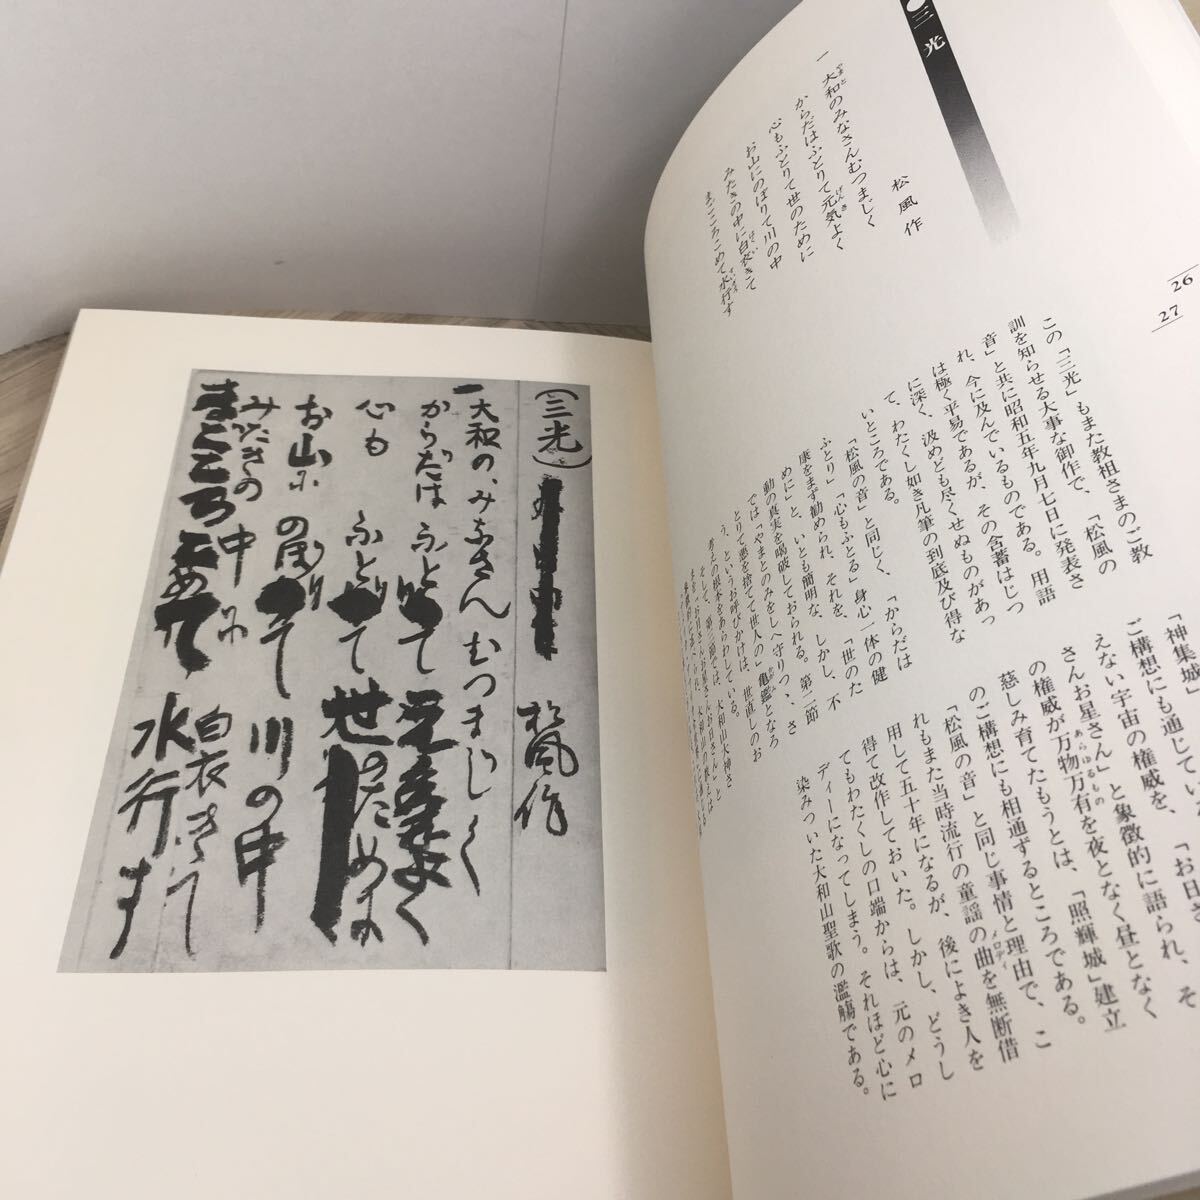 三光
26
27
松風作
一 大和のみなさんむつまじく
からだはふとりて元気よく
心もふとりて世のために
お山にのぼりて川の中
みたきの中に白衣きて
まごころこめて水行す
この「三光」もまた教祖さまのご教
訓を知らせる大事な御作で、「松風の
音」と共に昭和五年九月七日に発表さ
れ、今に及んでいるものである。用語
は極く平易であるが、その含蓄はじつ
に深く、汲めども尽くせぬものがあっ
て、わたくし如き凡筆の到底及び得な
いところである。
「松風の音」と同じく、「からだは
ふとり」「心もふとる」身心一体の健
康をまず勧められ、それを、「世のた
めに」と、いとも簡明な、しかし、不
動の真実を喝破しておられる。第二節
では「やまとのみをしへ守りつゝ、さ
とりて悪を捨てて世人の」亀鑑となろ
う、というお呼びかけは、世直しのお
考えの根本をあらわしている。
そして、第三節では、大和山大神さ
「神集城」
ご構想にも通じてい
えない宇宙の権威を、「お日さ
さんお星さん」と象徴的に語られ、そ
の権威が万物万有を夜となく昼となく
慈しみ育てたもうとは、「照輝城」建立
のご構想にも相通ずるところである。
「松風の音」と同じ事情と理由で、こ
れもまた当時流行の童謡の曲を無断借
用して五十年になるが、後によき人を
得て改作しておいた。しかし、どうし
てもわたくしの口端からは、元のメロ
ディーになってしまう。それほど心に
染みついた大和山聖歌の濫觴である。
(三光)
松風作
一大和の、みなさんむつまじく
からだはふとりて元気よく
心もふとりて世のために
お山にの慺りて川の中
みたきの中に白衣きて
まごころこめて水行す